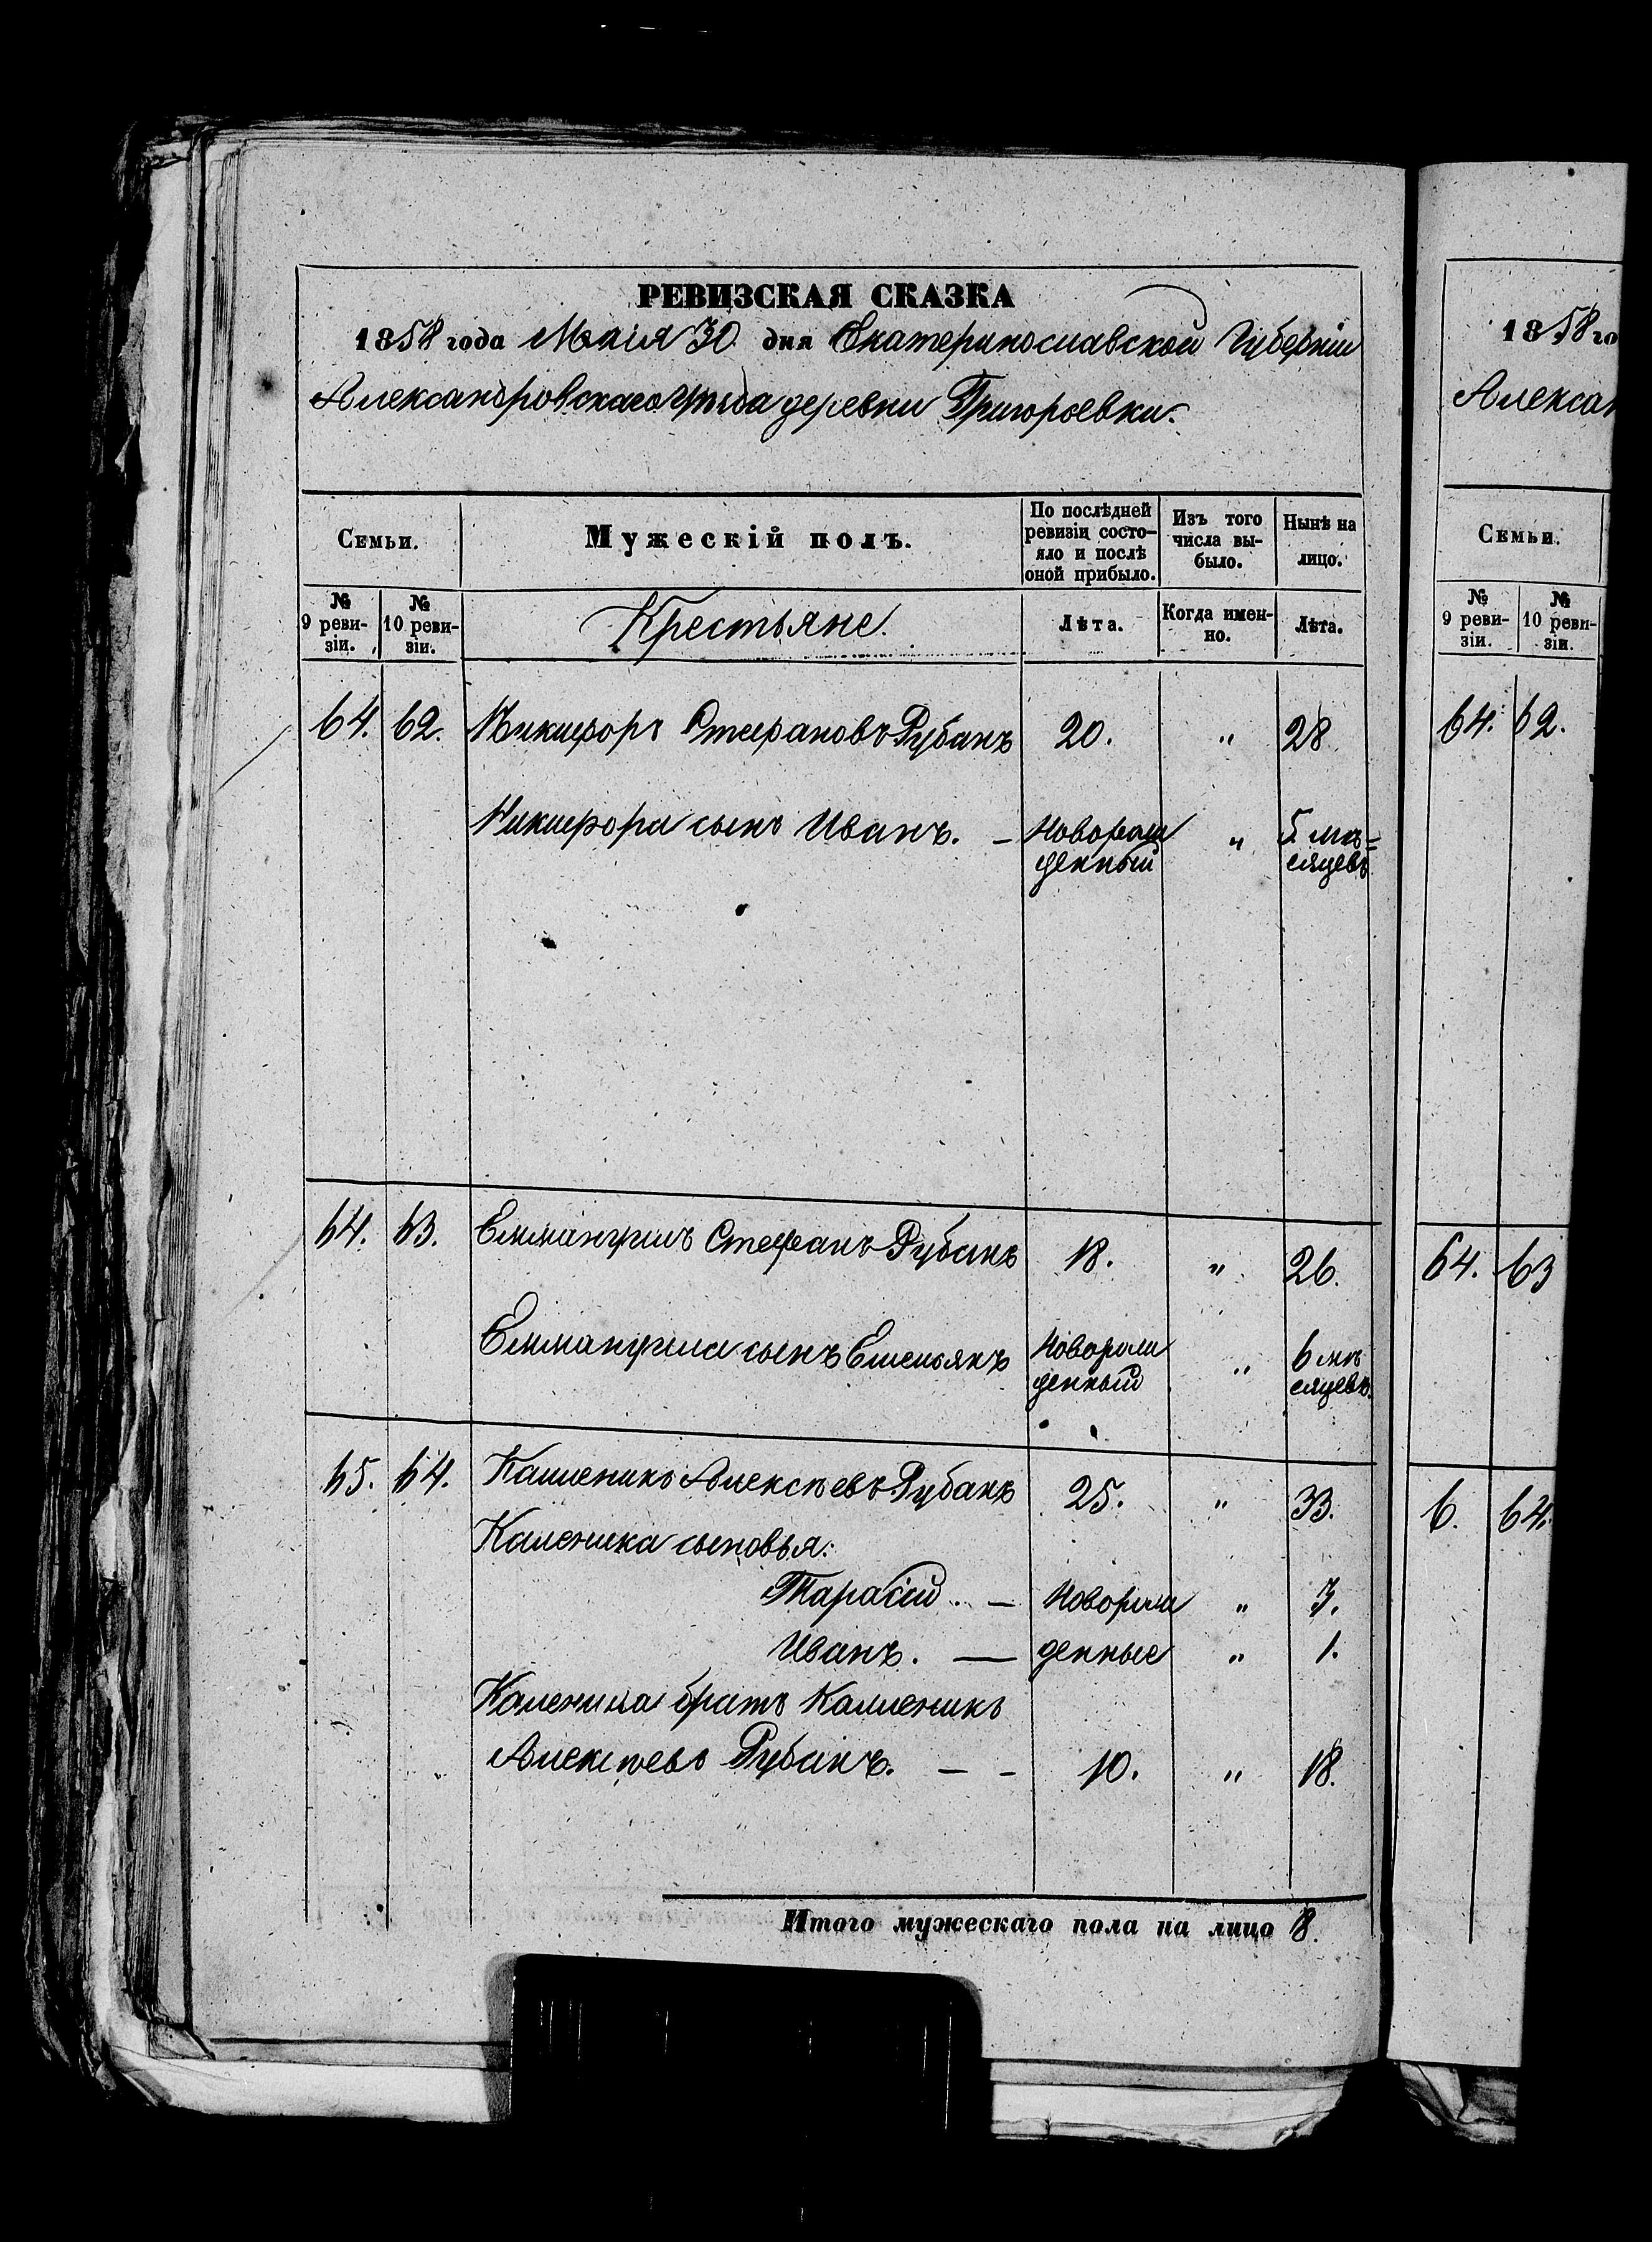 РЕВИЗСКАЯ СКАЗКА
1858 года Маія 30 дня Екатеринославской Губерніи
Александровскаго уѣзда деревни Григорьевки.
Семьи.
Мужескій полъ.
По послѣдней ревизіи состо-
яло и послѣ
оной прибыло.
Изъ того
числа вы-
было.
Нынѣ на
лицо.
№
9 реви-
зіи.
№
10 реви-
зіи.
Крестьяне.
Лѣта.
Когда имен-
но.
Лѣта.
64. 62. Никифоръ Стефановъ Рубанъ 20. " 28
Никифора сынъ Иванъ. – Новорож " 5 мѣ=
денный сяцевъ
64. 63. Еммануилъ Стефанъ Рубанъ 18. " 26.
Еммануила сынъ Емельянъ Новорож " 6 мѣ
денный сяцевъ.
65. 64. Калленикъ Алексѣевъ Рубанъ 25. " 33.
Каленика сыновья:
Тарасій. – Новорож " 7.
Иванъ. — денные " 1.
Каленика братъ Калленикъ
Алексѣевъ Рубанъ. – – 10. " 18.
Итого мужескаго пола на лицо 8.
1858 го
Алексан
Семьи.
№
9 реви-
зіи.
№
10 реви-
зіи.
64. 62.
64. 63
6. 64.